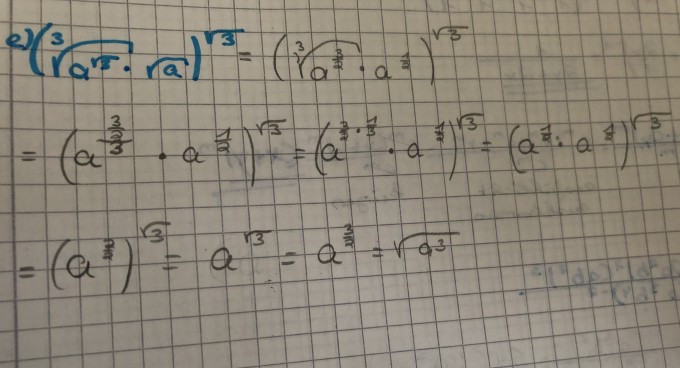 e) (∛(a^√3) · √a)^√3 = (∛(a^(3/2)) · a^(1/2))^√3
= (a^((3/2)/3) · a^(1/2))^√3 = (a^(3/2 · 1/3) · a^(1/2))^√3 = (a^(1/2) · a^(1/2))^√3
= (a^(2/2))^√3 = a^√3 = a^(3/2) = √(a³)